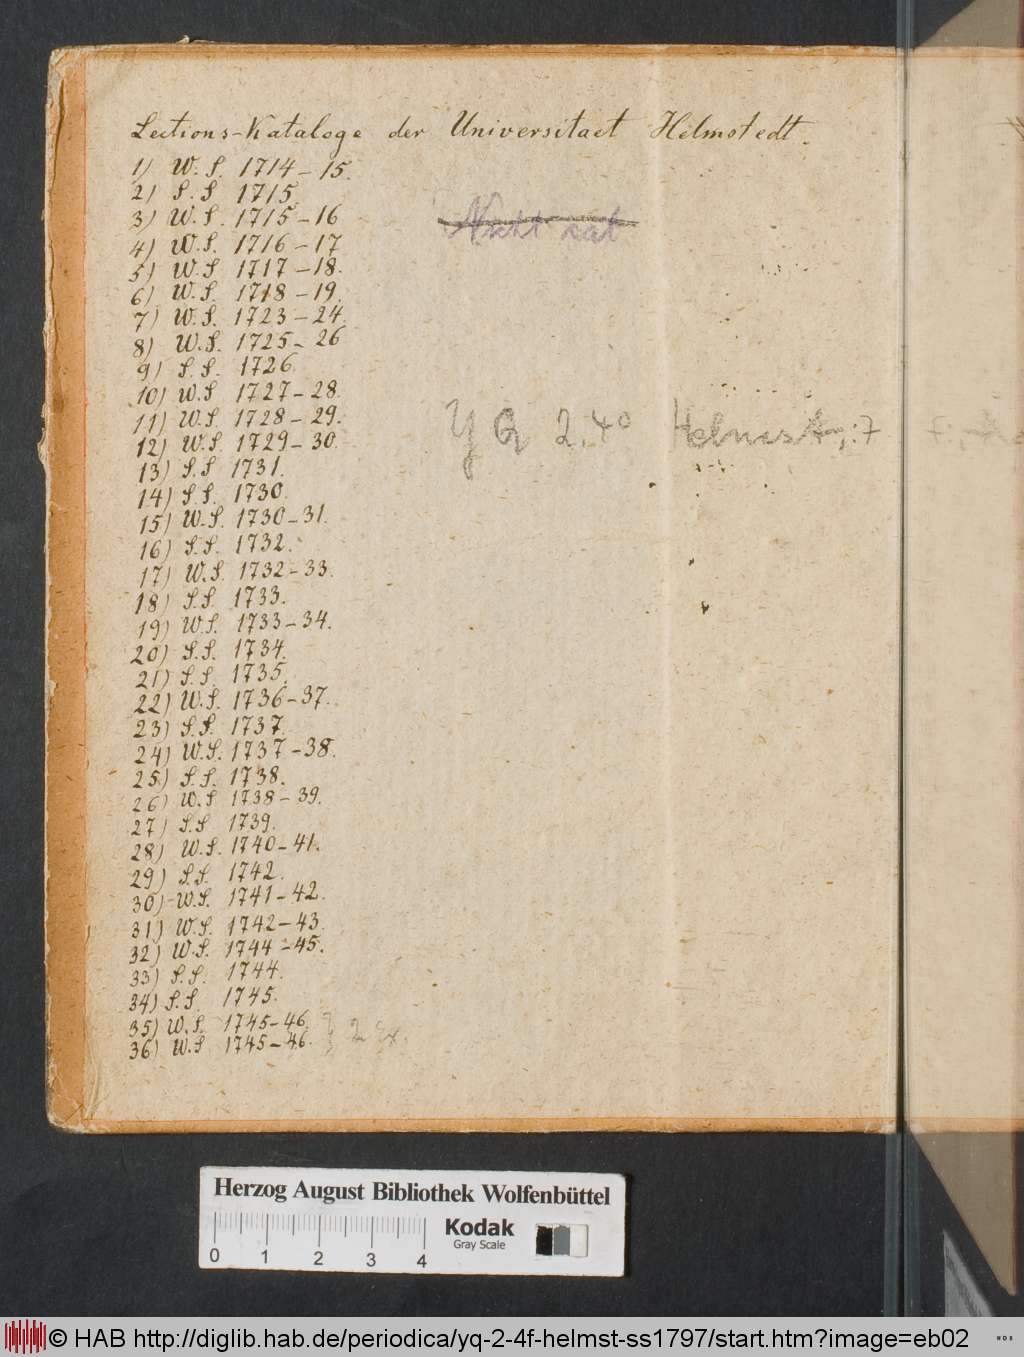 Lections-Kataloge der Universitaet Helmstedt.
1) W. S. 1714-15.
2) S. S 1715.
3) W. S. 1715-16
Nicht kat
4) W. S. 1716-17
5) W. S 1717-18.
6) W. S. 1718-19.
7) W. S. 1723-24.
8) W. S. 1725-26
9) S. S. 1726.
10) W. S 1727-28.
11) W. S. 1728-29.
YQ 2.4° Helmst
12) W. S. 1729-30.
13) S. S 1731.
14) S. S. 1730.
15) W. S. 1730-31.
16) S. S. 1732.
17) W. S. 1732-33.
18) S. S. 1733.
19) W. S. 1733-34.
20) S. S. 1734.
21) S. S. 1735.
22) W. S. 1736-37.
23) S. S. 1737.
24) W. S. 1737-38.
25) S. S. 1738.
26) W. S 1738-39.
27) S. S 1739.
28) W. S. 1740-41.
29) S. S. 1742.
30) W. S. 1741-42.
31) W. S. 1742-43.
32) W. S. 1744-45.
33) S. S. 1744.
34) S. S. 1745.
35) W. S. 1745-46.
36) W. S 1745-46. } 2 Ex.
Herzog August Bibliothek Wolfenbüttel
Kodak
Gray Scale
0 1 2 3 4
© HAB http://diglib.hab.de/periodica/yq-2-4f-helmst-ss1797/start.htm?image=eb02